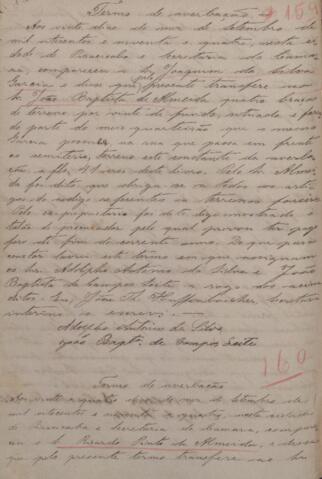 Termo de averbação 159
Aos vinte dias do mez de Setembro de
mil oitocentos e noventa e quatro, nesta ci-
dade de Piracicaba e Secretaria da Cama-
ra, compareceu o Sr. Joaquim da Silva
Garcia e disse que pelo presente transfere ao
Sr. João Baptista de Almeida quatro braças
de terreno por vinte de fundo, situado e faz
do parte do meio quarteirão que o mesmo
Garcia possue na rua que passa em frente
ao cemiterio, terreno este constante da averba-
ção a fls. 41 deste livro. Pelo Sr. Almei-
da foi dito que obriga-se a todos os arti-
gos do codigo referentes a terrenos foreiros.
Pelo ex-proprietario foi dito digo mostrado o
talão do procurador pelo qual provou ter pago
foro até fim do corrente anno. Do que para
constar lavrei este termo em que assignaram
os Srs. Adolpho Antonio da Silva e João
Baptista de Campos Leite a rogo dos
ditos. Eu, João Secretario
interino o escrevi.
Adolpho Antonio da Silva
João Bapta. de Campos Leite
160
Termo de averbação
Aos vinte e quatro dias do mez de Setembro de
mil oitocentos e noventa e quatro, nesta cidade
de Piracicaba e Secretaria da Camara, compare-
ceu o Sr. Ricardo Pinto de Almeida, e disse
que pelo presente termo transfere ao Sr.